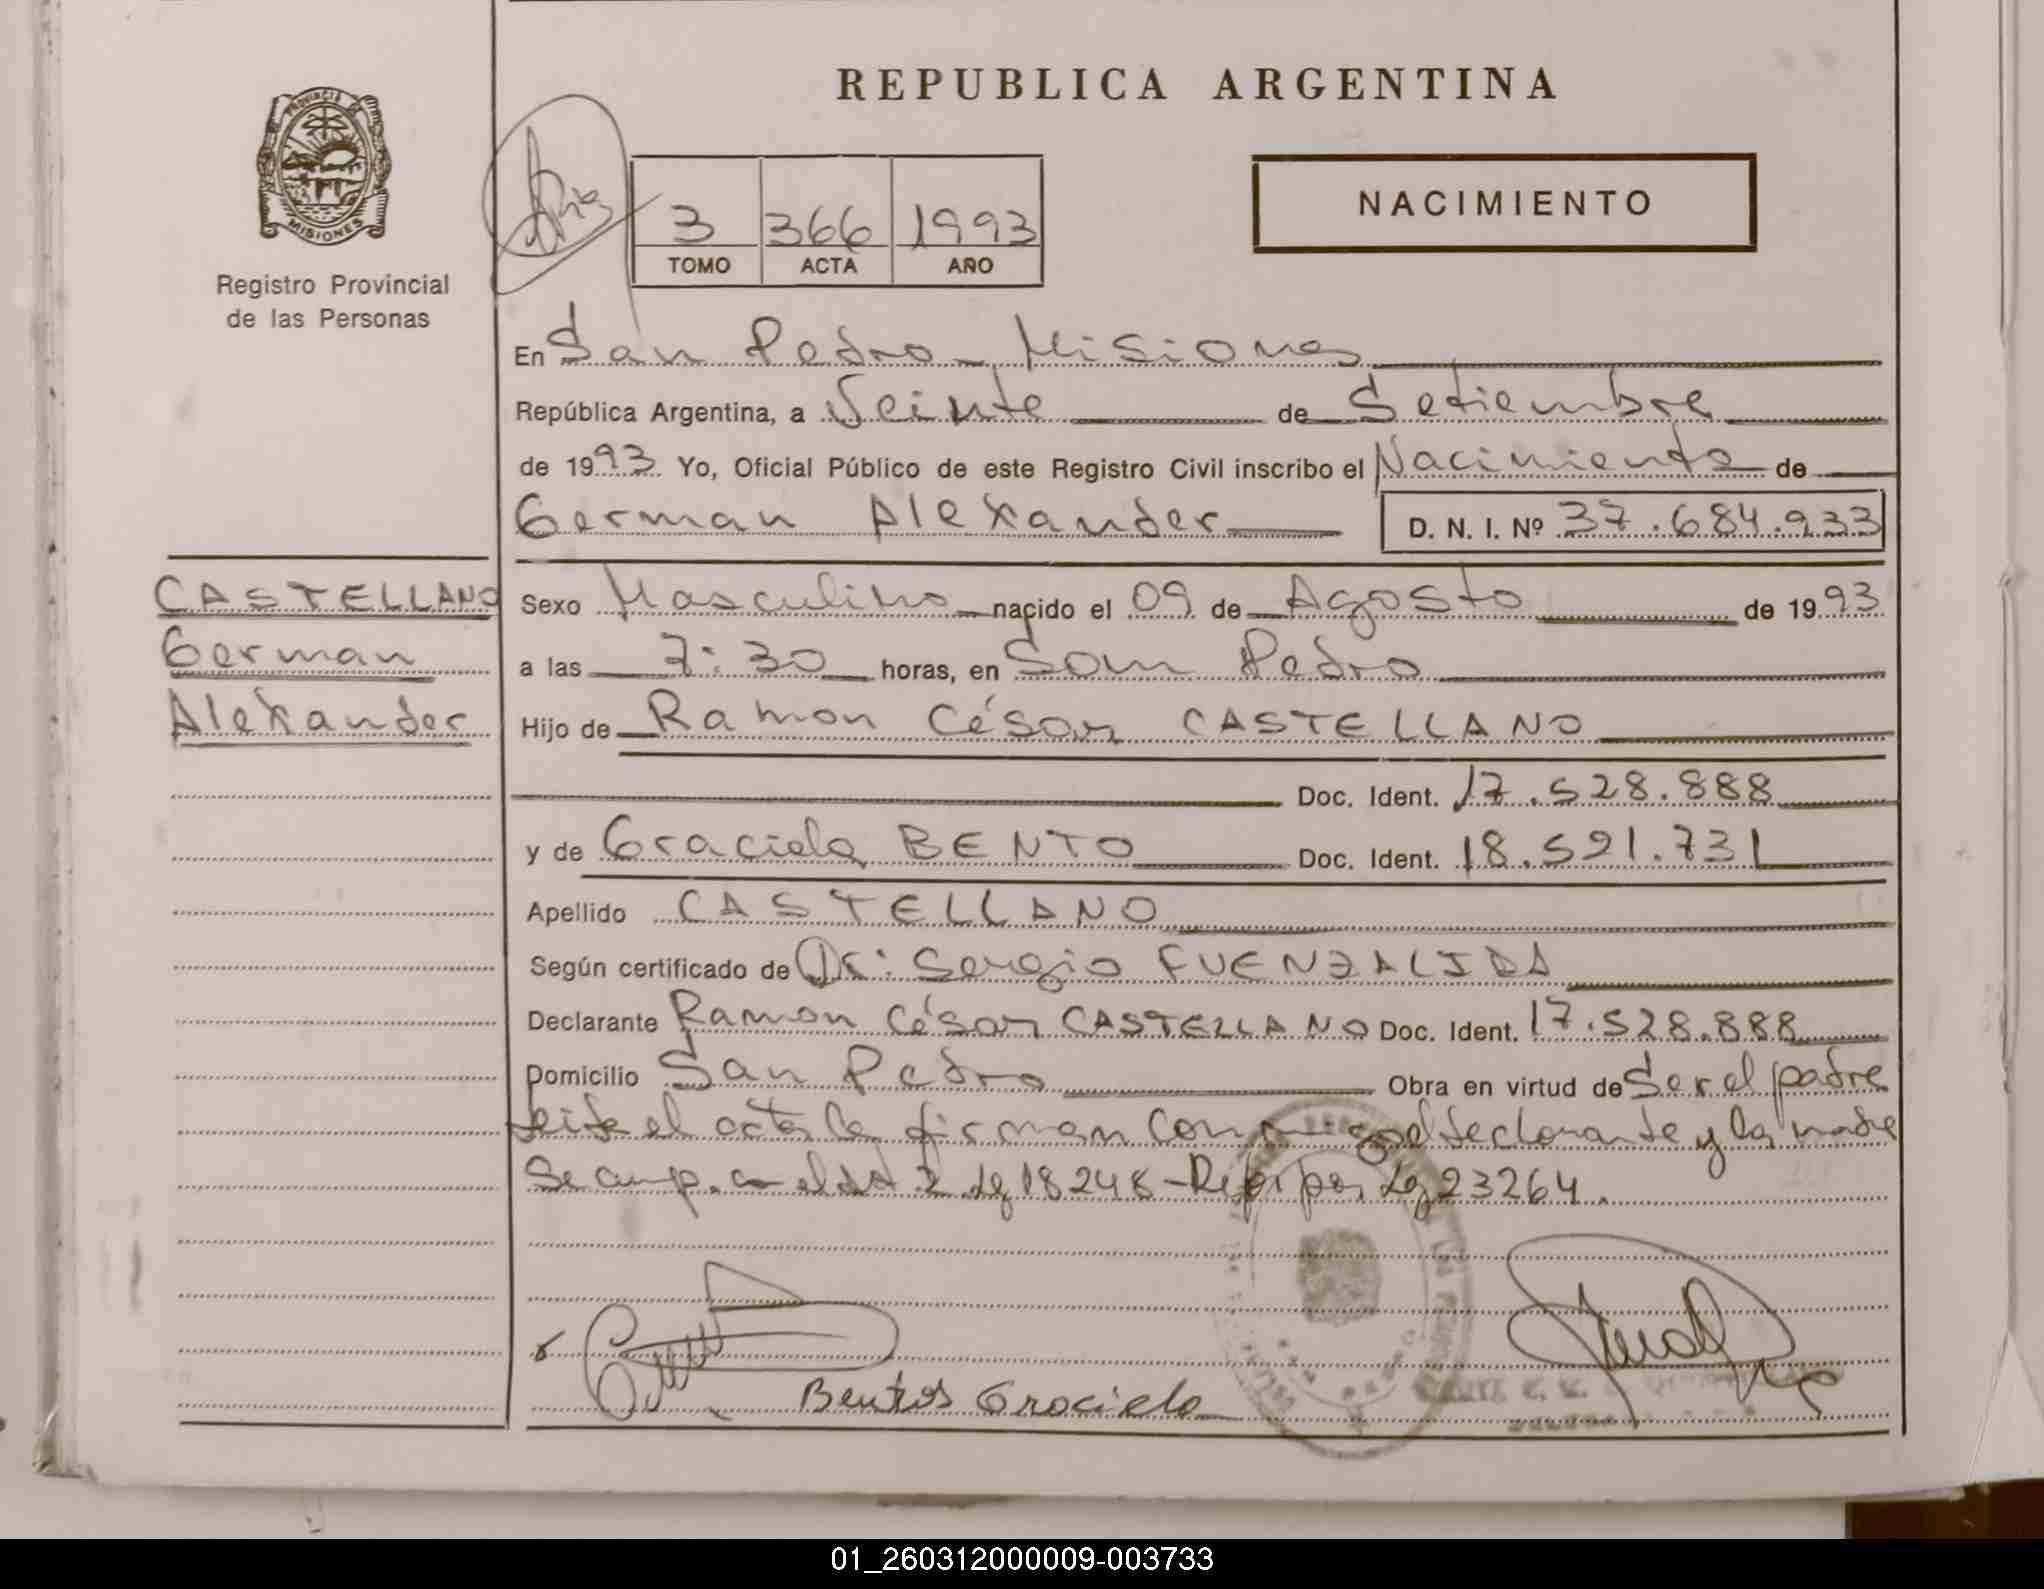 REPUBLICA ARGENTINA
PROVINCIA DE
MISIONES
Registro Provincial
de las Personas
3 366 1993
TOMO ACTA AÑO
NACIMIENTO
En San Pedro - Misiones
República Argentina, a Veinte de Setiembre
de 1993 Yo, Oficial Público de este Registro Civil inscribo el Nacimiento de
German Alexander D. N. I. Nº 37.684.933
CASTELLANO
German
Alexander
Sexo Masculino nacido el 09 de Agosto de 1993
a las 7:30 horas, en San Pedro
Hijo de Ramon César CASTELLANO
Doc. Ident. 17.528.888
y de Graciela BENTO Doc. Ident. 18.521.731
Apellido CASTELLANO
Según certificado de Dr: Sergio FUENZALIDA
Declarante Ramon César CASTELLANO Doc. Ident. 17.528.888
Domicilio San Pedro Obra en virtud de Ser el padre
leida el acta la firman conmigo el declarante y la madre
Se cump. con el Art. 2 Ley 18248 - Ref. por Ley 23264.
Bentos Graciela
01_260312000009-003733